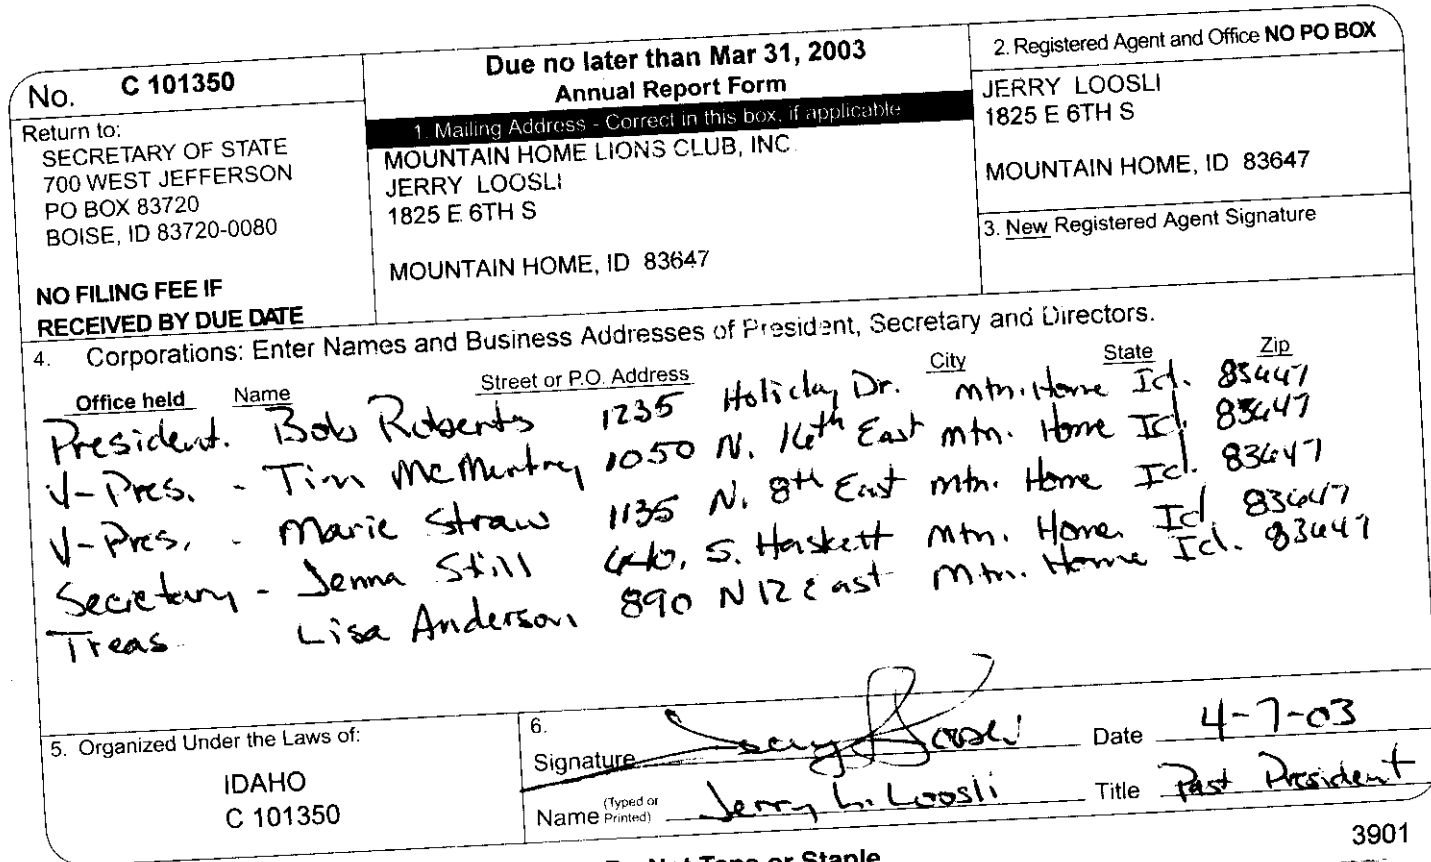 No. C 101350
Return to:
SECRETARY OF STATE
700 WEST JEFFERSON
PO BOX 83720
BOISE, ID 83720-0080
NO FILING FEE IF
RECEIVED BY DUE DATE
Due no later than Mar 31, 2003
Annual Report Form
1. Mailing Address - Correct in this box, if applicable
MOUNTAIN HOME LIONS CLUB, INC.
JERRY LOOSLI
1825 E 6TH S
MOUNTAIN HOME, ID 83647
2. Registered Agent and Office NO PO BOX
JERRY LOOSLI
1825 E 6TH S
MOUNTAIN HOME, ID 83647
3. New Registered Agent Signature
4. Corporations: Enter Names and Business Addresses of President, Secretary and Directors.
Office held Name Street or P.O. Address City State Zip
President. Bob Roberts 1235 Holiday Dr. Mtn. Home Id. 83647
V-Pres. - Tim McMurtrey 1050 N. 14th East Mtn. Home Id. 83647
V-Pres. - Marie Straw 1135 N. 8th East Mtn. Home Id. 83647
Secretary - Jenna Still S. Haskett Mtn. Home Id. 83647
Treas. Lisa Anderson 890 N 12 East Mtn. Home Id. 83647
5. Organized Under the Laws of:
IDAHO
C 101350
6.
Signature Jerry L Loosli Date 4-7-03
Name (Typed or Printed) Jerry L. Loosli Title Past President
3901
Do Not Tape or Staple